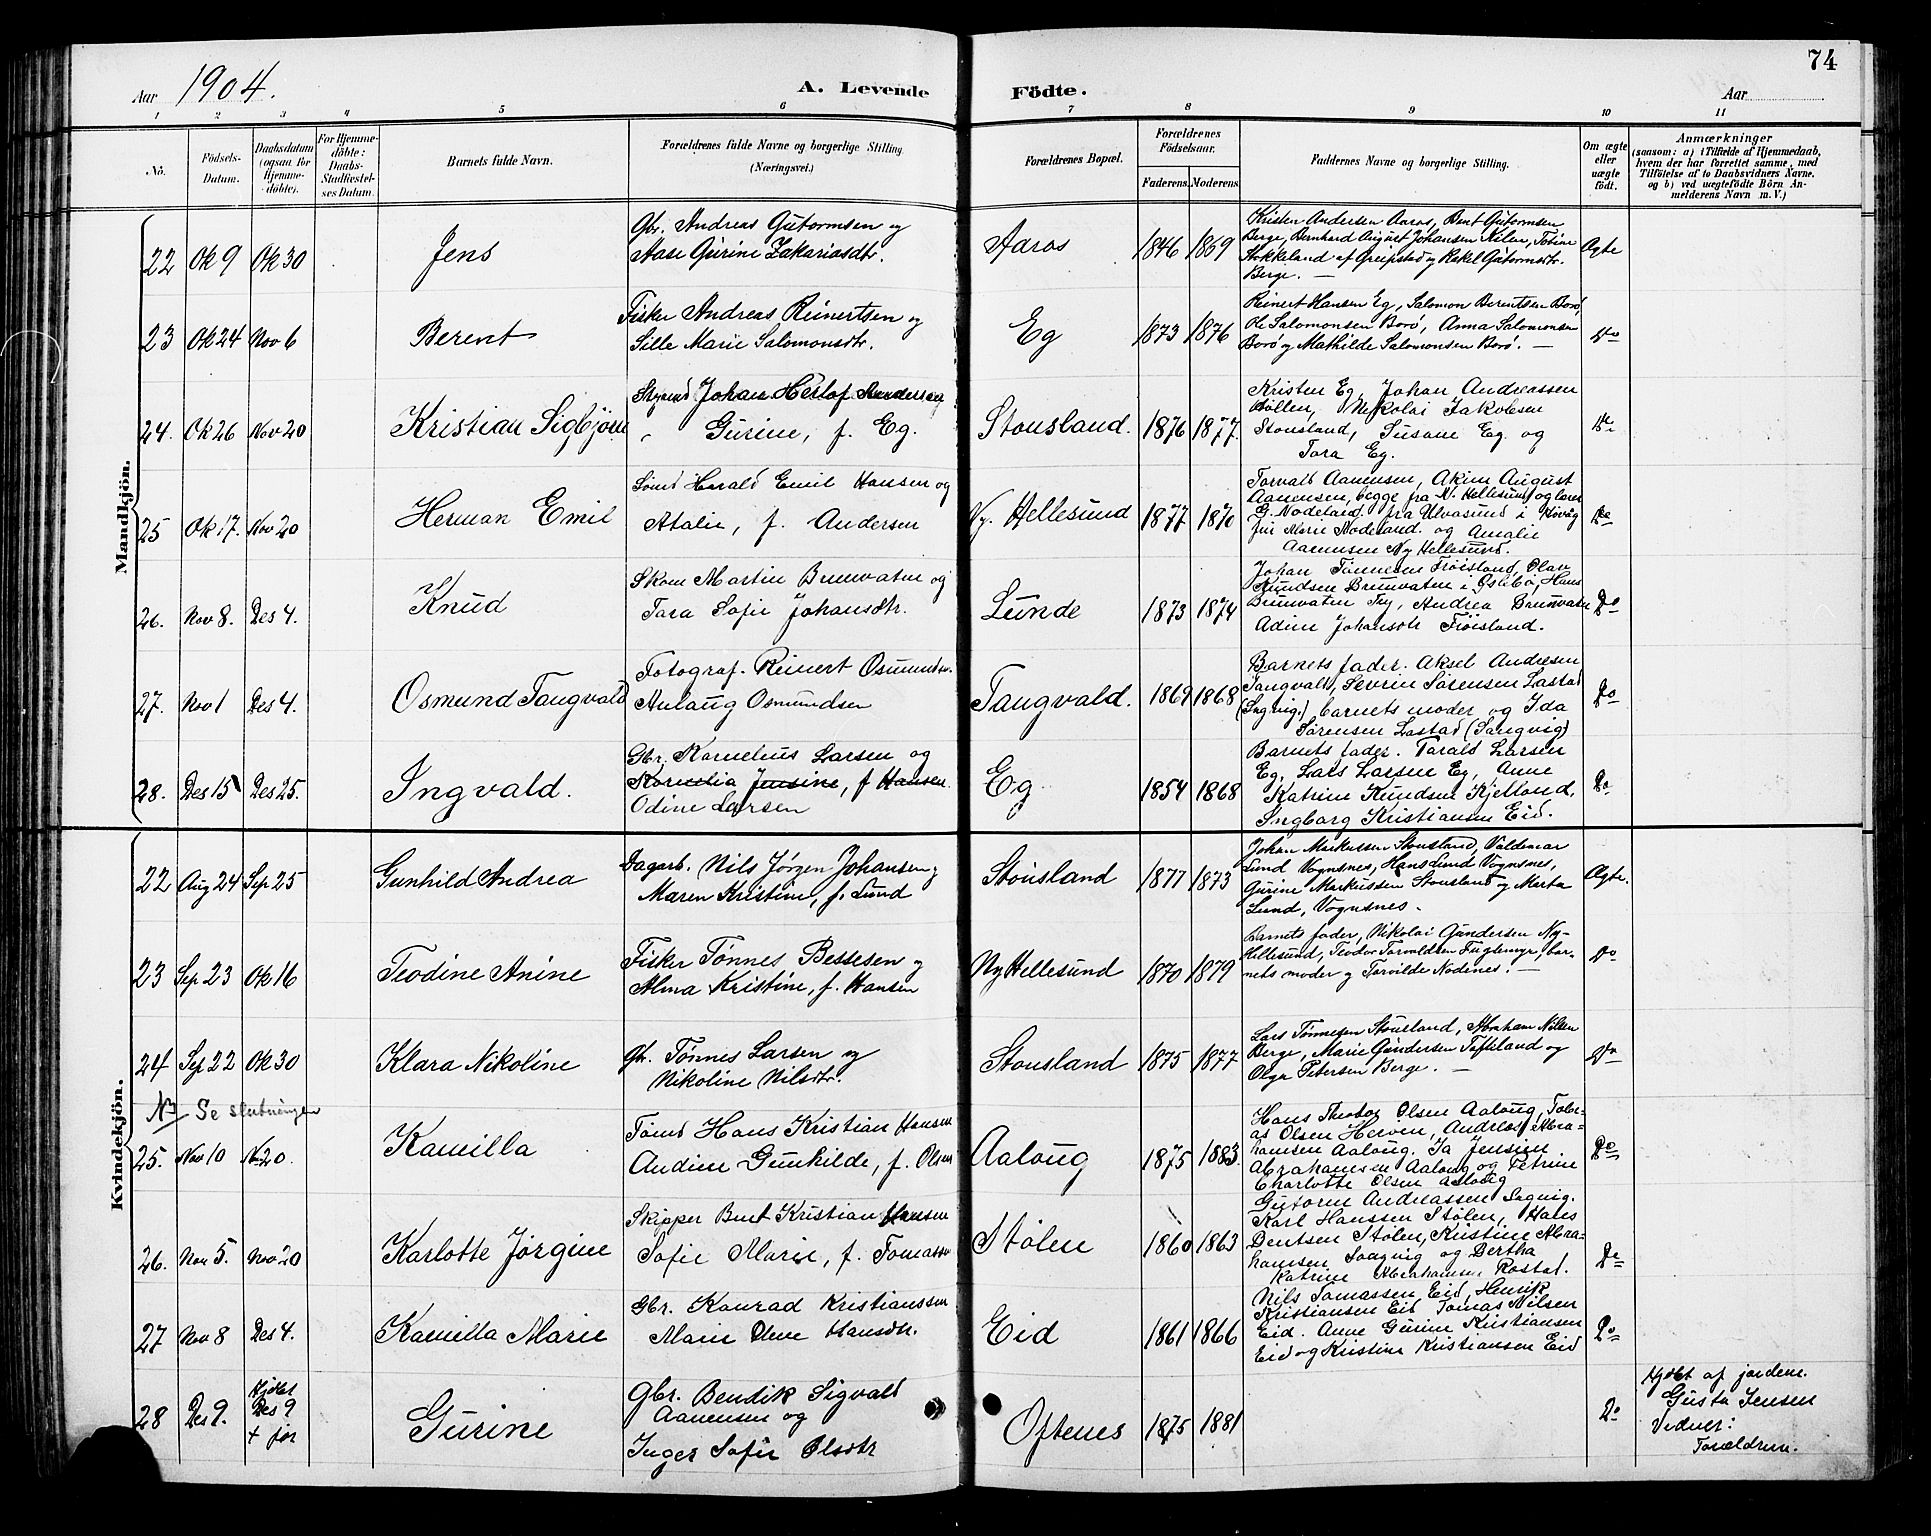 74
Aar 1904.
A. Levende Födte.
Aar
1 2 3 4 5 6 7 8 9 10 11
No.
Födsels-Datum.
Daabsdatum (ogsaa for Hjemme-döbte).
For Hjemme-döbte: Daabs-Stadfæstel-ses Datum.
Barnets fulde Navn.
Forældrenes fulde Navne og borgerlige Stilling.
(Næringsvei.)
Forældrenes Bopæl.
Forældrenes Födselsaar.
Faderens. Moderens.
Faddernes Navne og borgerlige Stilling.
Om ægte eller uægte födt.
Anmærkninger
(saasom: a) i Tilfælde af Hjemmedaab,
hvem der har forrettet samme, med
Tilföielse af to Daabsvidners Navne,
og b) ved uægtefödte Börn An-
melderens Navn m. V.)
Mandkjön.
22 Ok 9 Ok 30 Jens
Gbr. Andreas Gutormsen og
Aase Gurine Zakariasdtr.
Aaros 1846 1869
Kristen Andersen Aaros, Bent Gutormsen
Berge, Bernhard August Johansen Nilen, Tobine
Stokkeland af Greipstad og Rakel Gutormsdtr.
Berge. —
Ægte
23 Ok 24 Nov 6 Berent
Fisker Andreas Reinertsen og
Sille Marie Salomonsdtr.
Eg 1873 1876
Reinert Hansen Eg, Salomon Berentsen Borø,
Ole Salomonsen Borø, Anna Salomonsen
Borø og Mathilde Salomonsen Borø. —
Do
24. Ok 26 Nov 20 Kristian Sigbjørn
Styrmd Johan Herlof Andersen og
Gurine, f. Eg.
Stousland. 1876 1877.
Kristen Eg, Johan Andreassen
Høllen, Nikolai Jakobsen
Stousland, Susane Eg. og
Tora Eg.
Do
25 Ok 17. Nov 20 Herman Emil
Sømd Harald Emil Hansen og
Atalie, f. Andersen
Ny. Hellesund 1877 1870
Torvald Aanensen, Akim August
Aanensen, begge fra N. Hellesund og Lars
G. Nodeland fra Ulvøsund i Høvåg
Marie Nodeland. og Amalie
Aanensen Ny Hellesund.
Do
26. Nov 8. Des 4. Knud
Skom Martin Brunvatne og
Tara Sofie Johansdtr.
Lunde 1873 1874
Johan Tønnesen Frøisland, Olav
Knudsen Brunvatne i Øslebø, Hans
Brunvatne Try, Andrea Brunvatne
Adine Johansdtr Frøisland.
Do
27. Nov 1 Des 4. Osmund Tangvald
Fotograf. Reinert Osmundsen
Aslaug Osmundsen
Tangvald. 1869 1868
Barnets fader. Aksel Andresen
Tangvald, Sevrin Sørensen Lastad
(Sngvig.) barnets moder og Ida
Sørensen Lastad (Sangvig)
Do
28. Des 15 Des 25. Ingvald.
Gbr, Kornelius Larsen og
Kornelia Jensine, f Hansen
Odine Larsen
Eg 1854 1868
Barnets fader. Tarald Larsen
Eg, Lars Larsen Eg, Anne
Katrine Knudsen Kjelland,
Ingborg Kristiansen Eid.
Do
Kvindekjön.
22 Aug 24 Sep 25 Gunhild Andrea
Dagarb. Nils Jørgen Johansen og
Maren Kristine, f. Lund
Stousland 1877 1873
Johan Markussen Stousland, Valdemar
Lund Vognsnes, Hans Lund Vognsnes,
Gurine Markussen Stousland og Marta
Lund, Vognsnes.
Ægte.
23 Sep 23 Ok 16 Teodine Anine
Fisker Tønnes Bessesen og
Alma Kristine, f. Hansen
Ny Hellesund 1870 1879
Barnets fader, Nikolai Gundersen Ny-
Hellesund, Teodor Torvaldsen Fuglemyr, bar-
nets moder og Torvilde Nodenes. —
Do
24 Sep 22 Ok 30 Klara Nikoline
Gbr. Tønnes Larsen og
Nikoline Nilsdtr.
Stousland 1875 1877
Lars Tønnesen Stousland, Abraham Nilsen
Berge, Marie Gundersen Tofteland og
Olga Petersen Berge. —
Do
NB Se slutningen
25. Nov 10 Nov 20. Kamilla
Tømd Hans Kristian Hansen
Andine Gunhilde, f. Olsen
Aaloug 1875 1883.
Hans Theodor Olsen Aaloug, Tobi-
as Olsen Herven, Andreas Abra-
hamsen Aaloug. Ja Jensine
Abrahamsen Aaloug og Petrine
Charlotte Olsen Aaloug
Do
26. Nov 5. Nov 20 Karlotte Jørgine
Skipper Bent Kristian Hansen
Sofie Marie, f. Tomassen
Stølen 1860 1863
Gutorm Andreassen Sagvig.
Karl Hanssen Stølen, Hans
Bentsen Stølen, Kristine Abra-
hamsen Sangvig og Bertha
Katrine Abrahamsen Rostad.
Do
27 Nov 8 Des 4. Kamilla Marie
Gbr. Konrad Kristianssen
Marie Olene Hansdtr.
Eid 1861 1866
Nils Tomassen Eid, Henrik
Kristiansen Eid Tomas Nilsen
Eid. Anne Gurine Kristiansen
Eid og Kristine Kristiansen Eid
Do
28 Des 9. Hjdbt Des 9 + før Gurine
Gbr. Bendik Sigvald
Aanensen og
Inger Sofie Olsdtr
Oftenes 1875 1881
Do
Hjdbt af jordem.
Gusta Jensen
Vidner:
Forældrene.